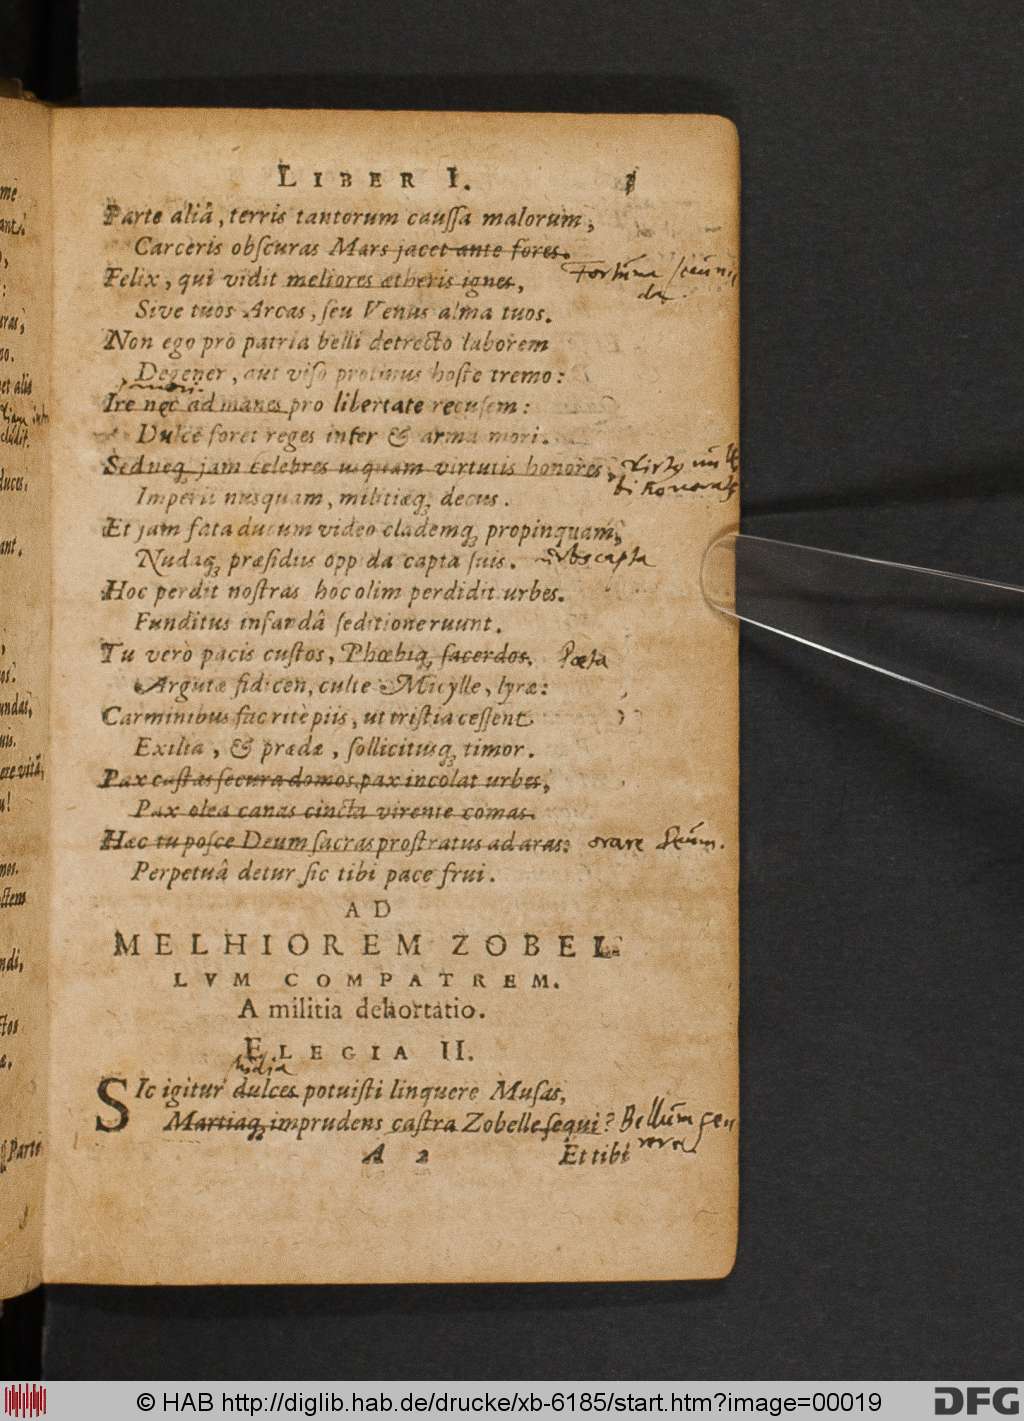 LIBER I.
Parte aliâ, terris tantorum caussa malorum,
Carceris obscuras Mars jacet ante fores.
Felix, qui vidit meliores ætheris ignes,
Fortuna secun
da.
Sive tuos Arcas, seu Venus alma tuos.
Non ego prò patria belli detrecto laborem
Degener, aut viso protinus hoste tremo:
mori.
Ire nec ad manes pro libertate recusem:
Dulce foret reges inter & arma mori.
Sed neq; jam celebres usquam virtutis honores,
Imperii nusquam, militiæq; decus.
Et jam fata ducum video clademq; propinquam,
Nudaq; præsidiis oppida capta suis.
Urbs capta
Hoc perdit nostras hoc olim perdidit urbes.
Funditus infandâ seditione ruunt.
Tu verò pacis custos, Phœbiq; sacerdos.
Poeta
Argutæ fidicen, culte Micylle, lyræ:
Carminibus fac ritè piis, ut tristia cessent
Exilia, & prædæ, sollicitusq; timor.
Pax castas secura domos, pax incolat urbes,
Pax olea canas cincta virente comas.
Hæc tu posce Deum sacras prostratus ad aras:
orare Deum.
Perpetuâ detur sic tibi pace frui.
AD
MELHIOREM ZOBEL
LVM COMPATREM.
A militia dehortatio.
ELEGIA II.
SIc igitur dulces potuisti linquere Musas,
Martiaq; imprudens castra Zobelle sequi?
Bellum ge
rere
A 2
Et tibi
© HAB http://diglib.hab.de/drucke/xb-6185/start.htm?image=00019
DFG